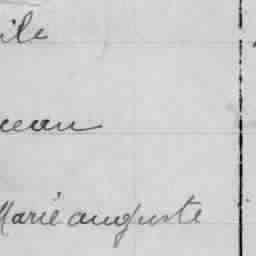 ile
neau
Marie auguste